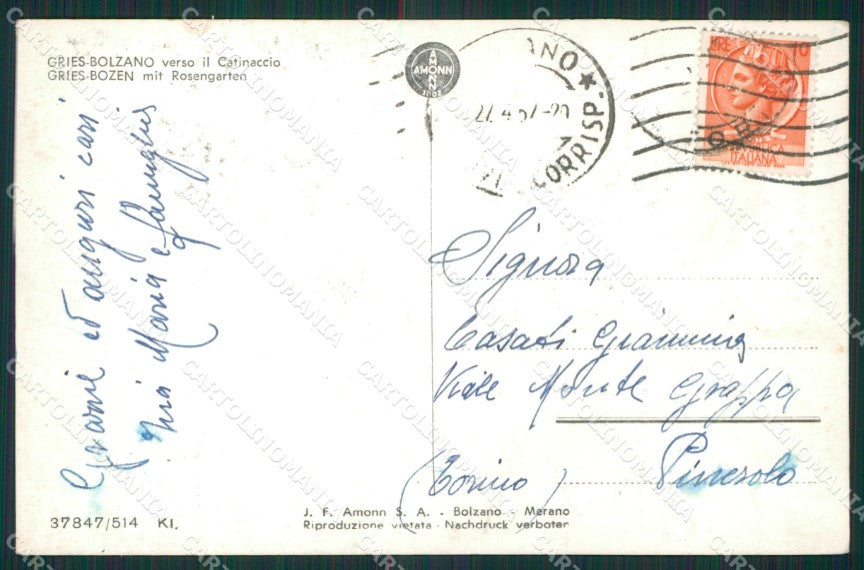 GRIES-BOLZANO verso il Catinaccio
GRIES-BOZEN mit Rosengarten
AMONN
ANO
CORRISP.
LIRE 10
ITALIANA
Grazie ed auguri cari
Maria e famiglia
Signora
Casati Giannina
Viale Monte Grappa
Pinerolo
(Torino)
37847/514 KI.
J. F. Amonn S. A. - Bolzano - Merano
Riproduzione vietata - Nachdruck verboten
CARTOLINOMANIA